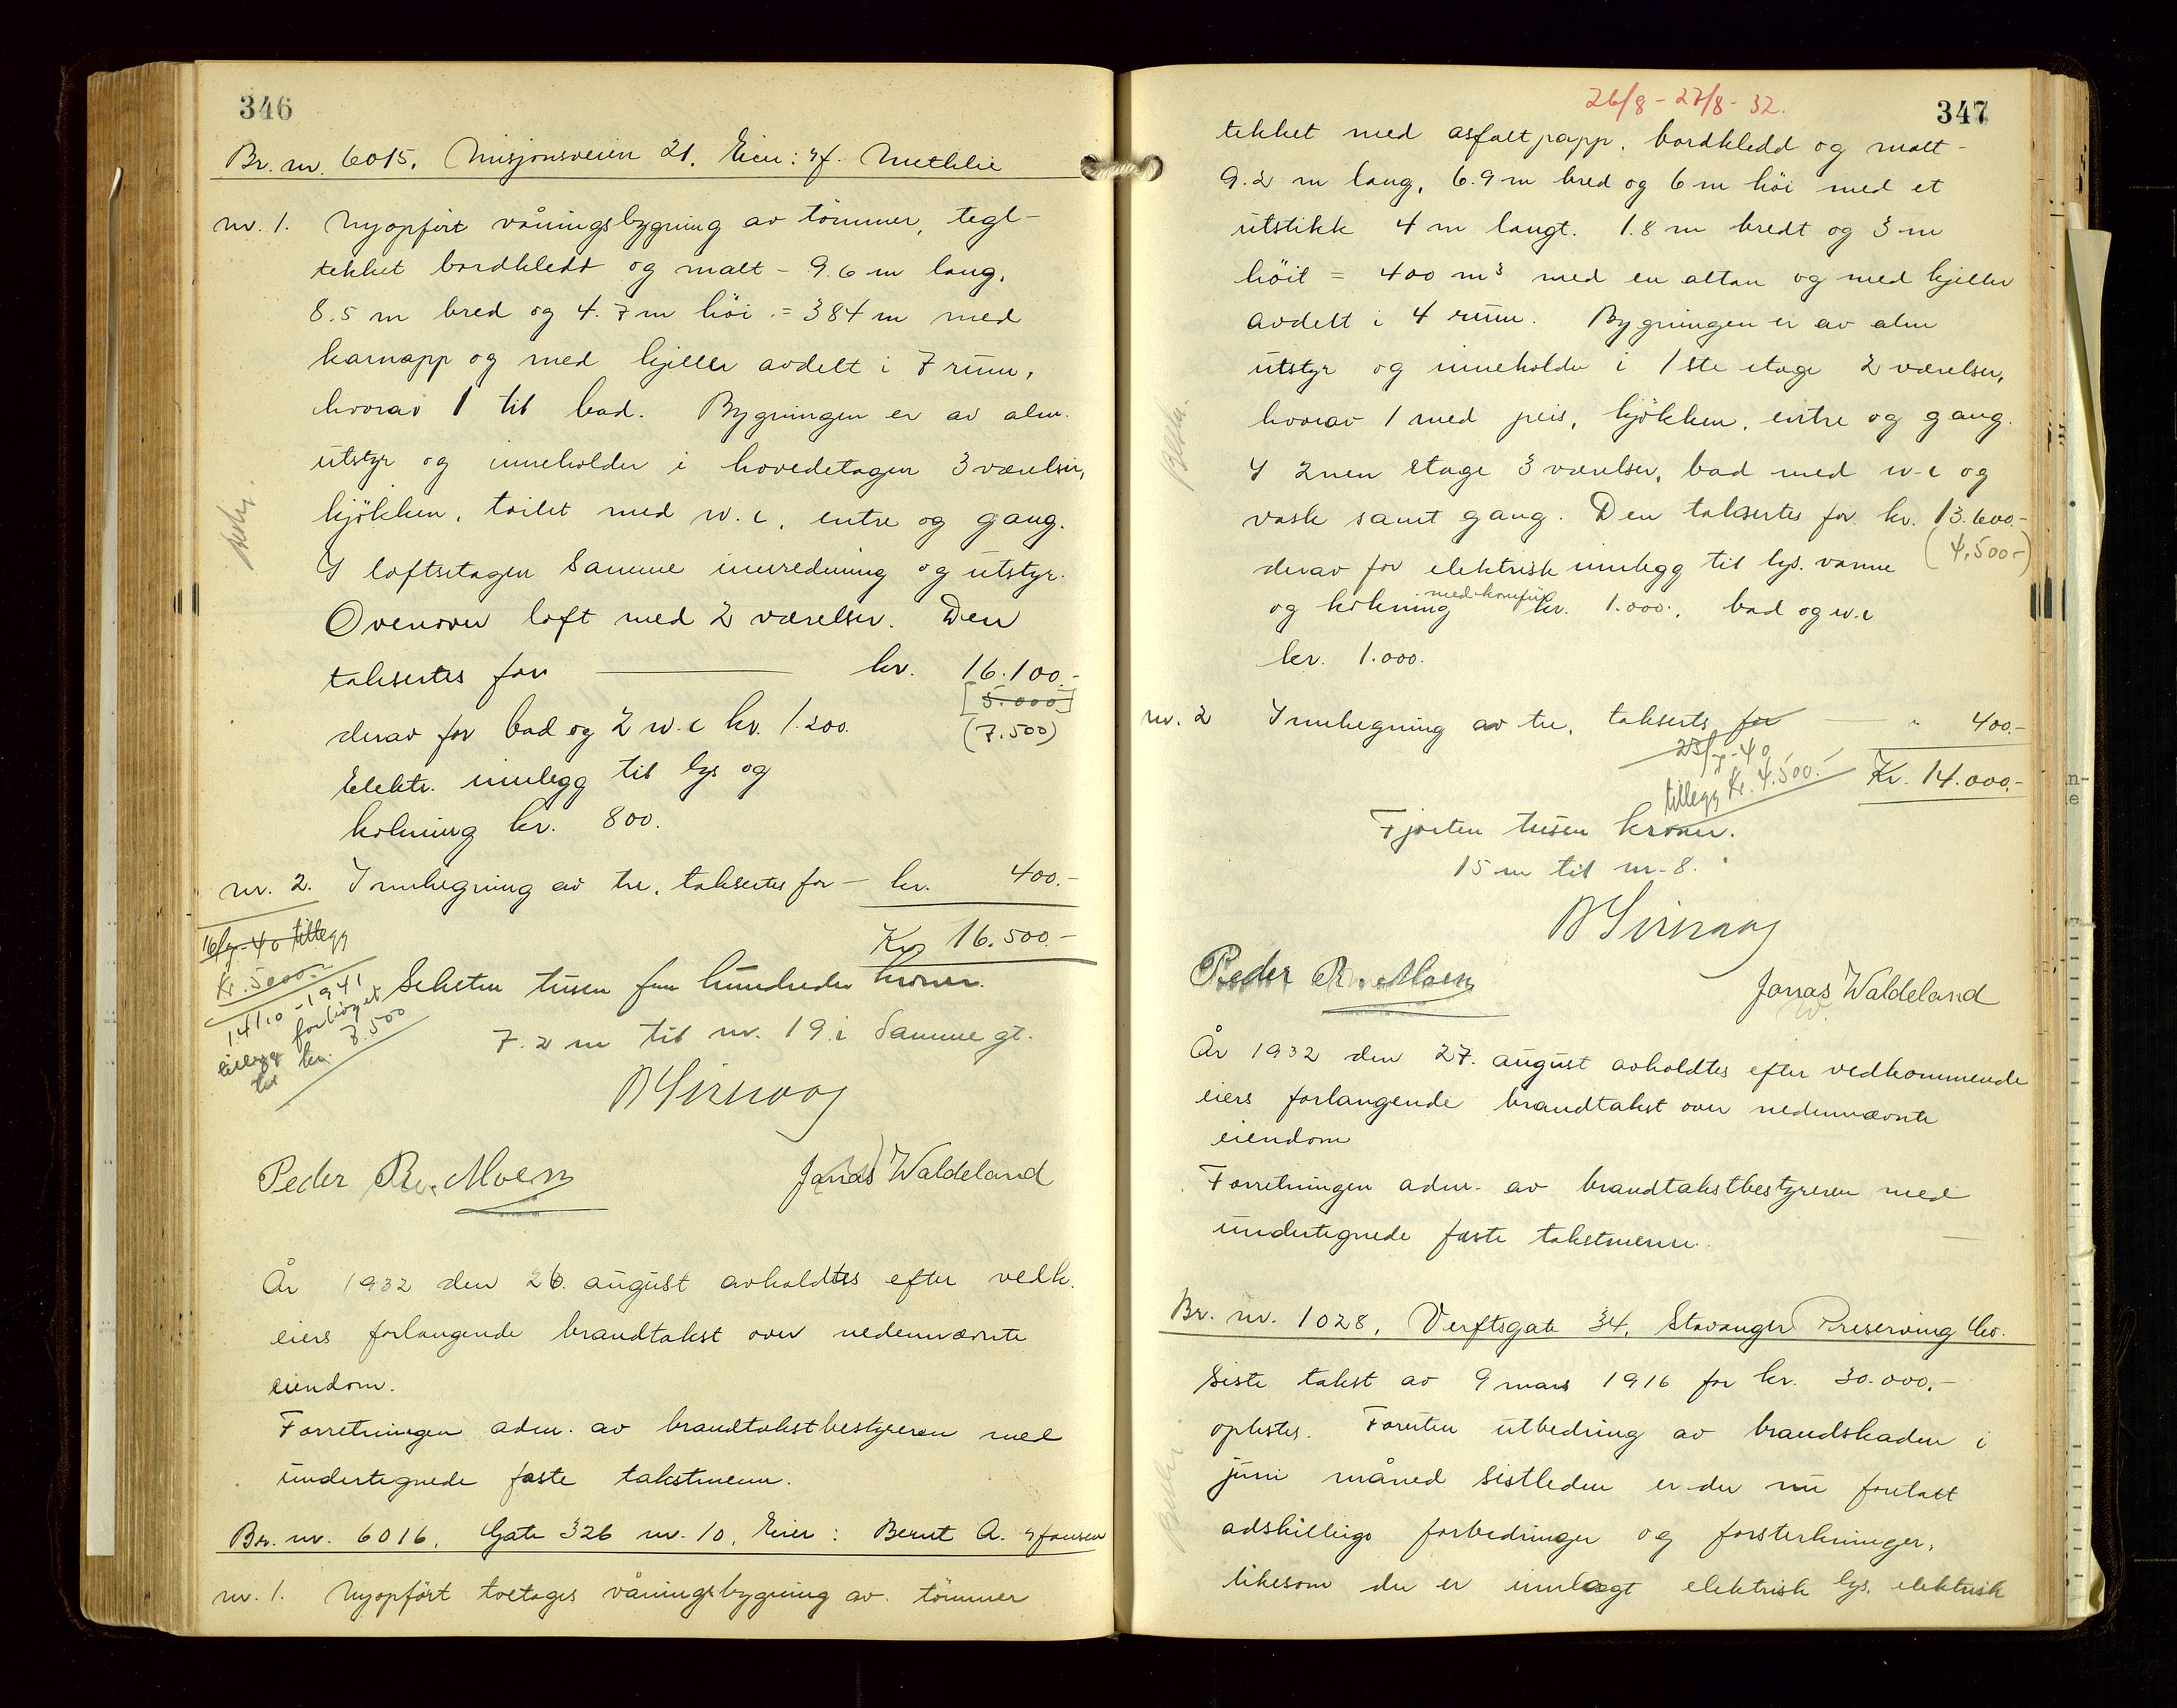 346
Br. nr. 6015. Misjonsveien 21. Eier: Methlie
nr. 1. Nyopført våningsbygning av tømmer, tegl-
tekket bordkledt og malt - 9.6 m lang,
8.5 m bred og 4.7 m höi = 384 m med
karnapp og med kjeller avdelt i 7 rum,
hvorav 1 til bad. Bygningen er av alm.
utstyr og inneholder i hovedetagen 3 værelser,
kjökken, toilet med w.c, entre og gang.
I loftsetagen samme innredning og utstyr.
Ovenover loft med 2 værelser. Den
taksertes for kr. 16.100.-
[5.000]
derav for bad og 2 w.c kr. 1.200. (7.500)
Elektr. innlegg til lys og
kokning kr. 800.
nr. 2. Innhegning av tre, taksertes for - kr. 400.-
Kr 16.500.-
16/7-40 tillegg
Kr. 5000.-
14/10-1941
tillegg forhöyet
til kr. 7.500
Seksten tusen fem hundrede kroner.
7.2 m til nr. 19 i samme gt.
Peder R. Moen Jonas Waldeland
År 1932 den 26. august avholdtes efter vedk.
eiers forlangende brandtakst over nedennævnte
eiendom.
Forretningen adm. av brandtakstbestyreren med
undertegnede faste takstmenn.
Br. nr. 6016. Gate 326 nr. 10. Eier: Bernt A. Hansen
nr. 1. Nyopført toetages våningsbygning av tømmer
26/8 - 27/8 - 32.
347
tekket med asfaltpapp, bordkledd og malt -
9.2 m lang, 6.9 m bred og 6 m höi med et
utstikk 4 m langt. 1.8 m bredt og 3 m
höit = 400 m³ med en altan og med kjeller
avdelt i 4 rum. Bygningen er av alm
utstyr og inneholder i 1ste etage 2 værelser,
hvorav 1 med peis, kjökken, entre og gang.
I 2nen etage 3 værelser, bad med w.c og
vask samt gang. Den taksertes for kr. 13.600.-
(4.500-)
derav for elektrisk innlegg til lys. varme
og kokning med komfur kr. 1.000., bad og w.c
kr. 1.000.
nr. 2 Innhegning av tre, taksertes for " 400.-
23/7-40
tillegg Kr. 4.500.-
Kr. 14.000.-
Fjorten tusen kroner.
15 m til nr. 8.
Peder R. Moen
Jonas Waldeland
År 1932 den 27. august avholdtes efter vedkommende
eiers forlangende brandtakst over nedennævnte
eiendom
Forretningen adm. av brandtakstbestyreren med
undertegnede faste takstmenn.
Br. nr. 1028, Verftsgate 34, Stavanger Preserving Co.
Siste takst av 9 mars 1916 for kr. 30.000.-
oplestes. Foruten utbedring av brandskaden i
juni måned sistleden er der nu foretatt
adskillige forbedringer og forsterkninger,
likesom der er innlagt elektrisk lys, elektrisk